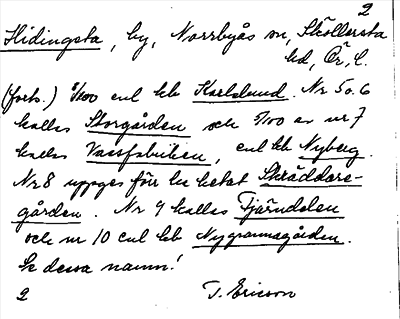 2
Hidingsta, by, Norrbyås sn, Sköllersta
hd, Ör. l.
(forts.) 8/100 enl kb Karlslund. Nr 5 o. 6
kallas Storgården och 5/100 av nr 7
kallas Vassfabriken, enl kb Nyberg.
Nr 8 uppges förr ha hetat Skräddare-
gården. Nr 9 kallas Fjärndelen
och nr 10 enl kb Nygrannagården.
Se dessa namn!
2 T. Ericson